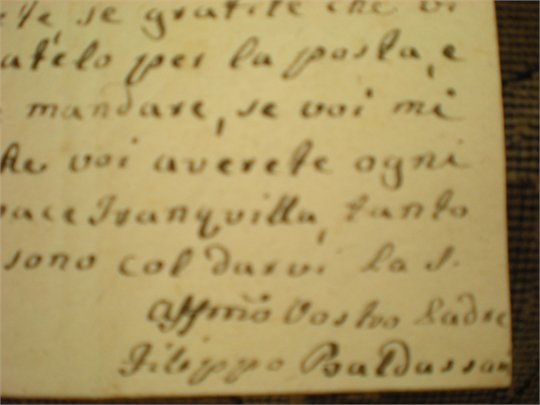 se gratite che vi
atelo per la posta, e
mandare, se voi mi
he voi averete ogni
pace Tranquilla, tanto
sono col darvi la S.
Affmo Vostro Padre
Filippo Baldassari